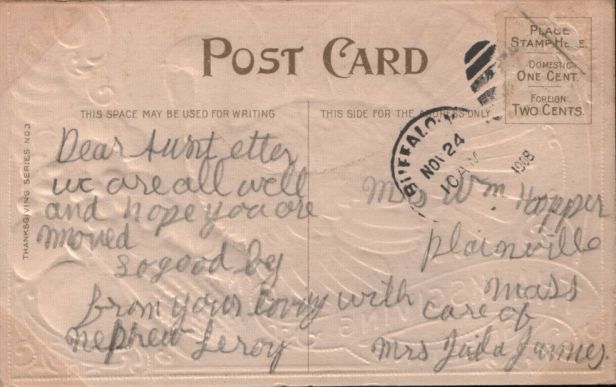 POST CARD
PLACE
STAMP HERE
DOMESTIC
ONE CENT.
FOREIGN
TWO CENTS
THIS SPACE MAY BE USED FOR WRITING
THIS SIDE FOR THE ADDRESS ONLY
THANKSGIVING SERIES NO.3
BUFFALO, N.Y.
NOV 24
10 AM
1908
Dear Aunt etter
we are all well
and hope you are
moved
so good by
from your with
nephew Leroy
Mrs Wm Hopper
plainville
mass
care of
mrs Juda